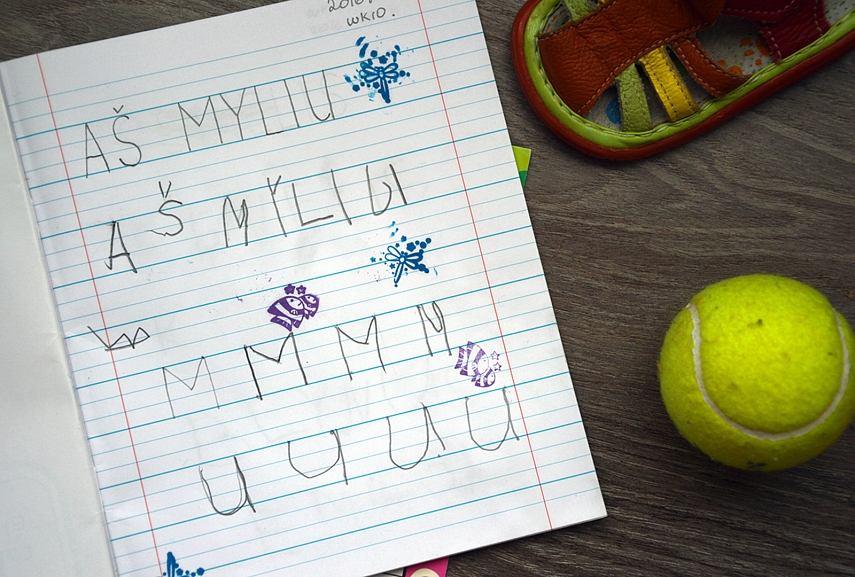 AŠ MYLIU
AŠ MYLIU
M M M M
U U U U